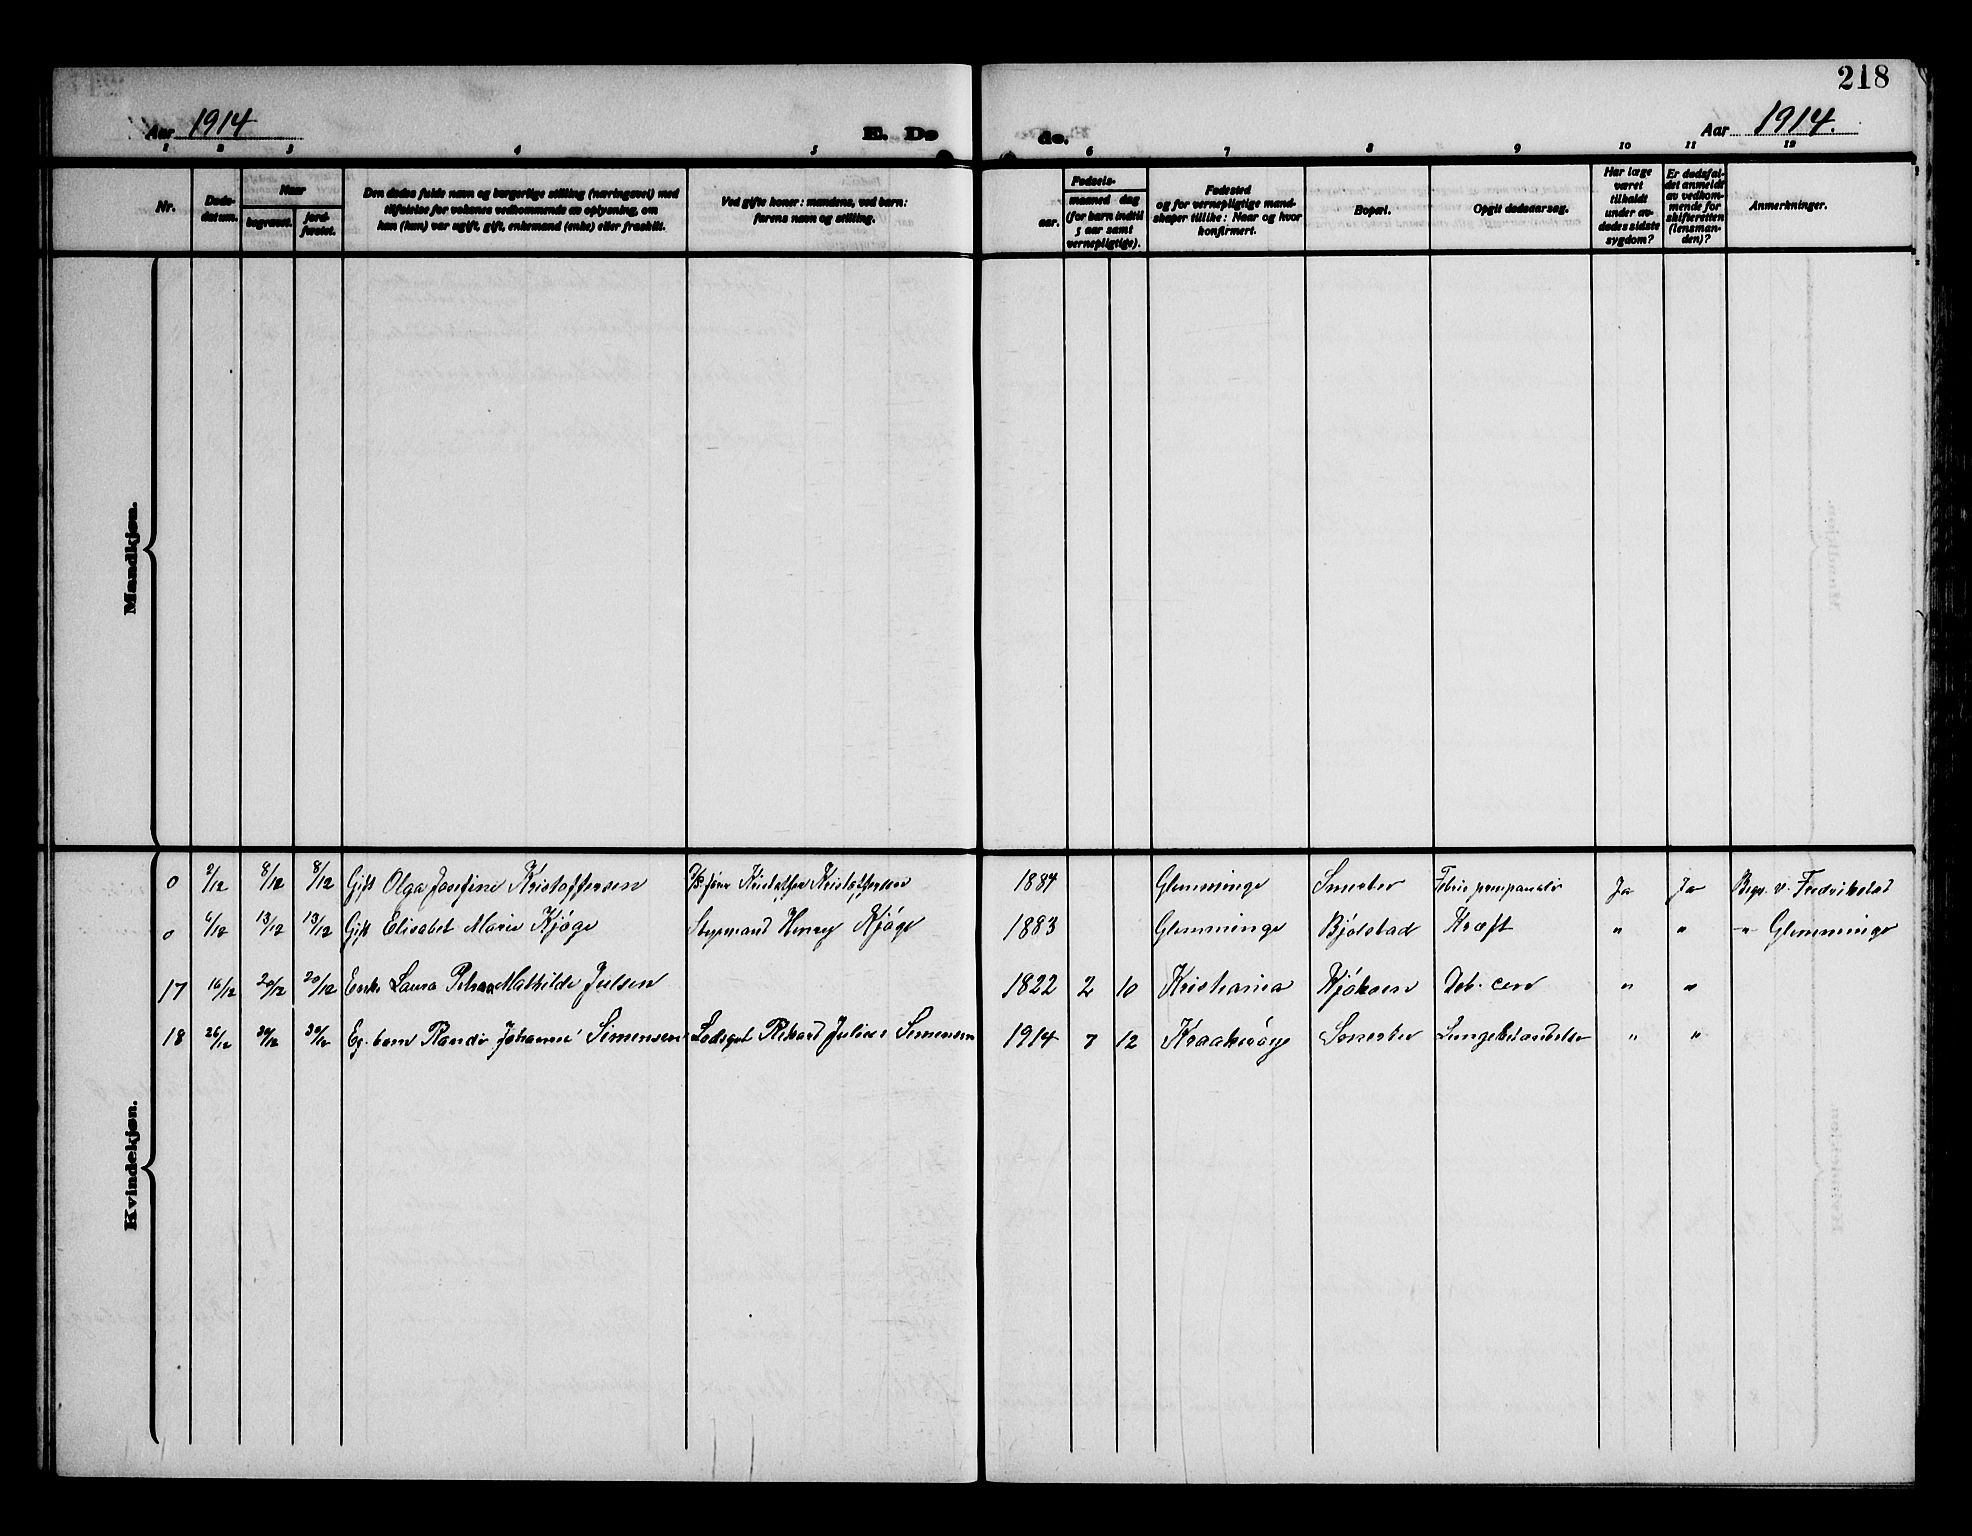 218
Aar 1914 E. Dø
de. Aar 1914.
1 2 3 4 5 6 7 8 9 10 11 12
Nr.
Døds-
datum.
Naar
begravet.
jord-
fæstet.
Den dødes fulde navn og borgerlige stilling (næringsvei) med
tilføielse for voksnes vedkommende av oplysning, om
han (hun) var ugift, gift, enkemand (enke) eller fraskilt.
Ved gifte koner: mandens, ved barn:
farens navn og stilling.
Fødsels-
aar.
maaned dag
(for barn indtil
5 aar samt
vernepligtige).
Fødested
og for vernepligtige mand-
skaper tillike: Naar og hvor
konfirmert.
Bopæl.
Opgit dødsaarsag.
Har læge
været
tilkaldt
under av-
dødes sidste
sygdom?
Er dødsfal-
det anmeldt
av vedkom-
mende for
skifteretten
(lensman-
den)?
Anmerkninger.
Mandkjøn.
Kvindekjøn.
0 2/12 8/12 8/12 Gift Olga Josefine Kristoffersen Kristoffer Kristoffersen 1884 Glemminge Smertu Ja Ja Begr. v. Fredrikstad
0 6/12 13/12 13/12 Gift Elisabet Marie Kjøge Styrmand Henry Kjøge 1883 Glemminge Bjølstad Kræft " " -"- Glemminge
17 16/12 20/12 20/12 Enke Laura Petrea Mathilde Julsen 1822 2 10 Kristiania Kjøkøen Deb. cor " "
18 26/12 30/12 30/12 Eg. barn Randi Johanne Simensen Lodsgut Rikard Julius Simensen 1914 7 12 Kraakerøy Lungebetændelse " "